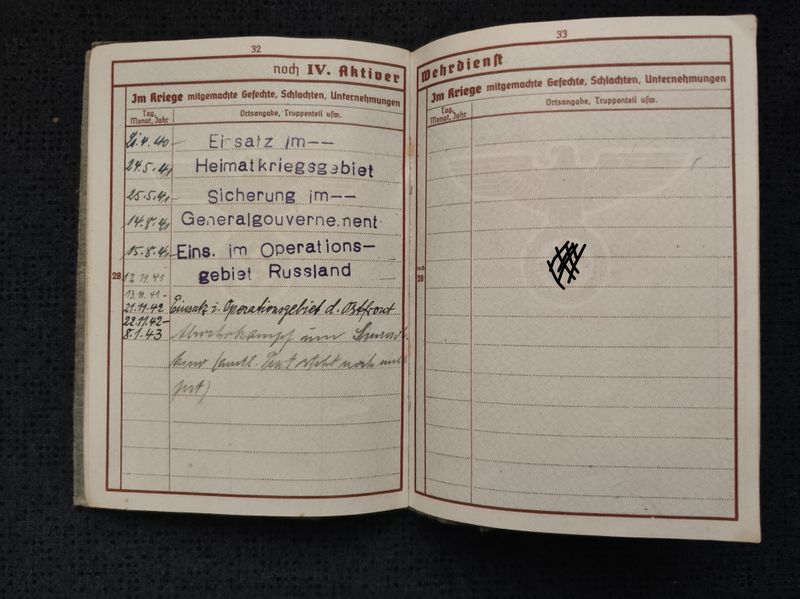 32
noch IV. Aktiver
Im Kriege mitgemachte Gefechte, Schlachten, Unternehmungen
Tag, Monat, Jahr
Ortsangabe, Truppenteil usw.
4.40 – Einsatz im--
24.5.41 Heimatkriegsgebiet
25.5.41 – Sicherung im--
14.8.41 Generalgouvernement
15.8.41 Eins. im Operations-
28 12.11.41 gebiet Russland
13.11.41-
21.11.42 Einsatz i. Operationsgebiet d. Ostfront
22.11.42-
8.1.43 Abwehrkampf um
(amtl. Text steht noch nicht
fest)
33
Wehrdienst
Im Kriege mitgemachte Gefechte, Schlachten, Unternehmungen
Tag, Monat, Jahr
Ortsangabe, Truppenteil usw.
noch
28